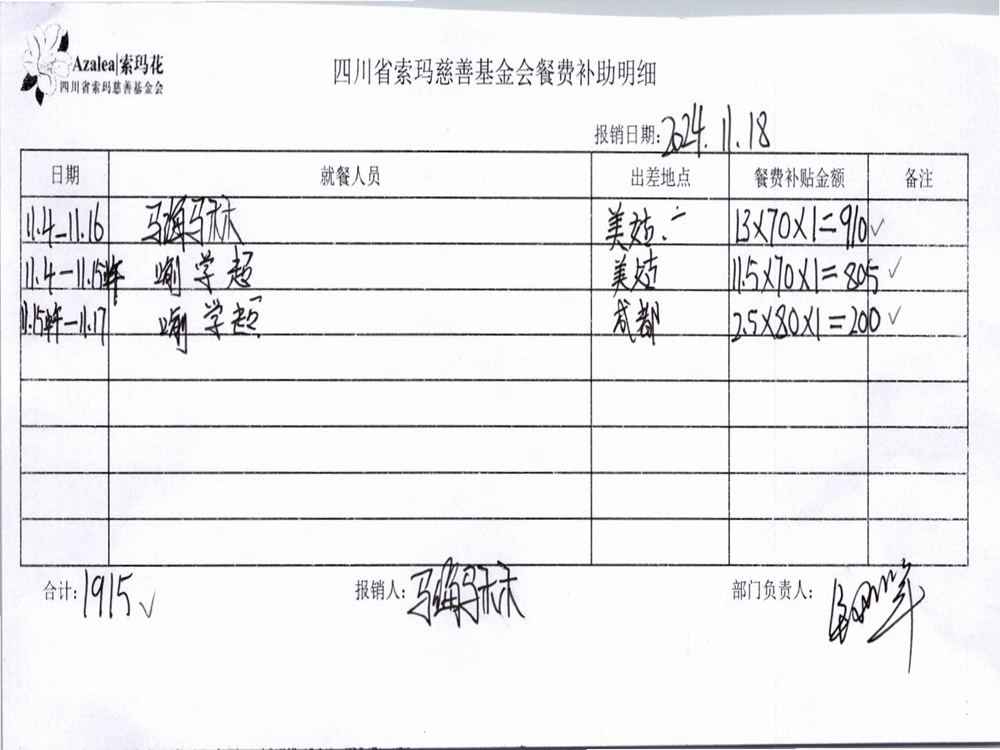 Azalea|索玛花
四川省索玛慈善基金会
四川省索玛慈善基金会餐费补助明细
报销日期: 2024.11.18
日期 就餐人员 出差地点 餐费补贴金额 备注
11.4-11.16 马海马林 美姑 13×70×1=910 ✓
11.4-11.15 学超 美姑 11.5×70×1=805 ✓
11.15-11.17 学超 成都 2.5×80×1=200 ✓
合计: 1915 ✓ 报销人: 马海马林 部门负责人: